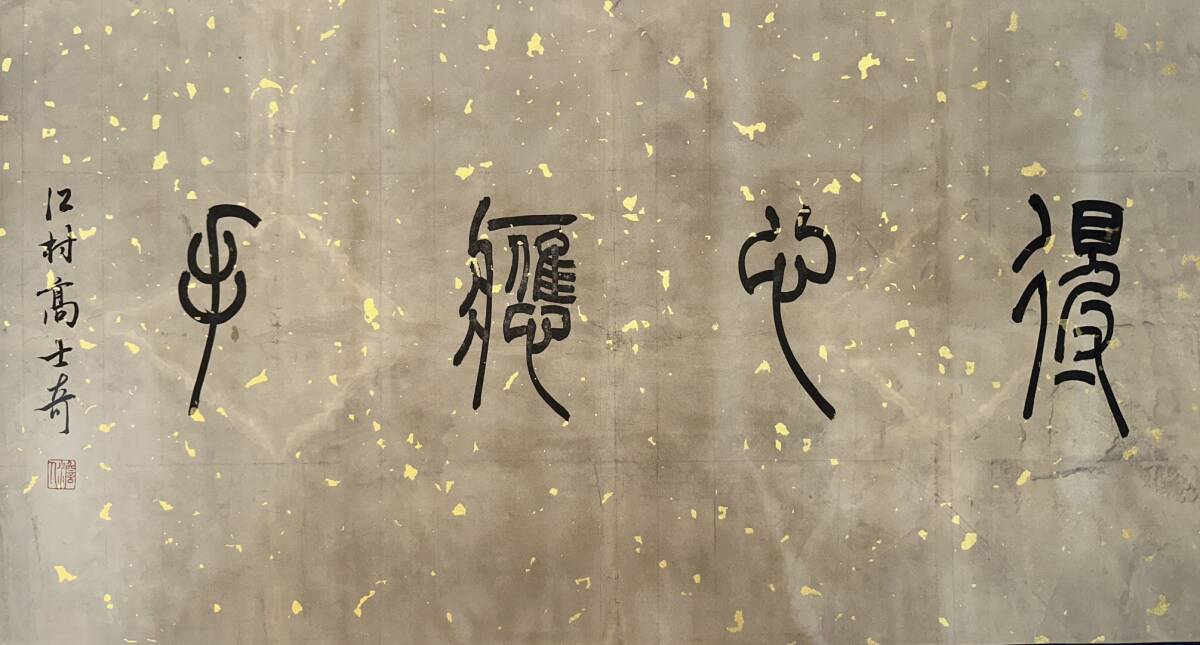 得心應手
江村高士奇